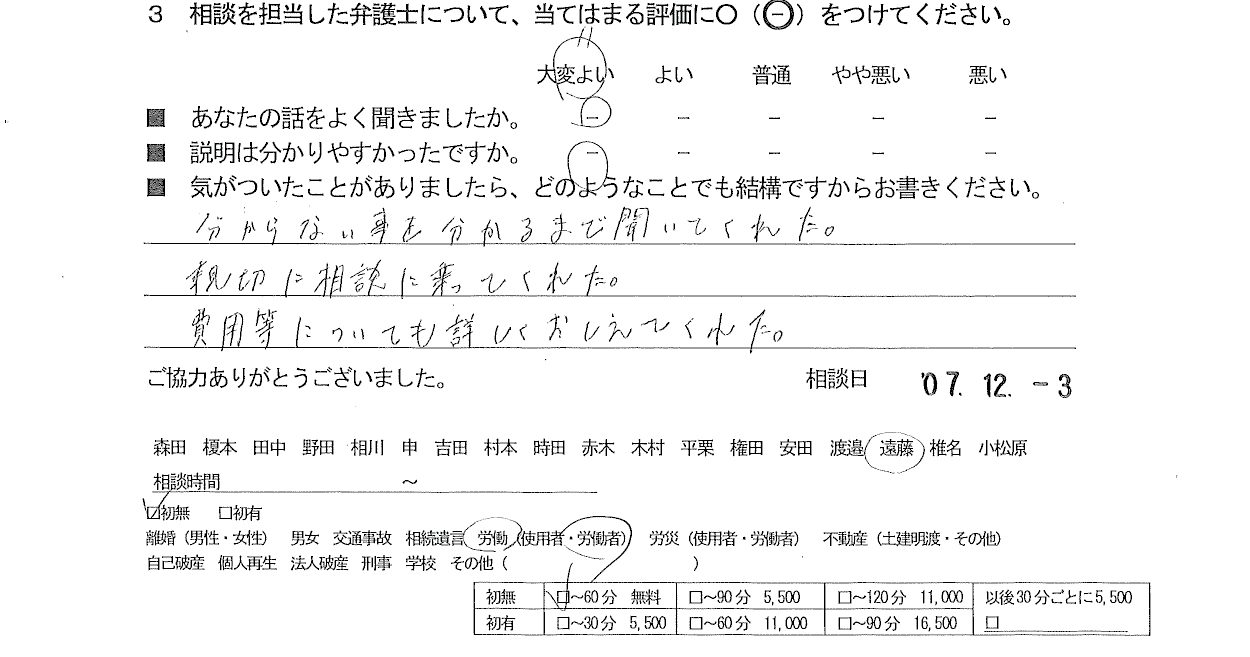 3 相談を担当した弁護士について、当てはまる評価に〇(㊀)をつけてください。
大変よい よい 普通 やや悪い 悪い
■ あなたの話をよく聞きましたか。 － － － － －
■ 説明は分かりやすかったですか。 － － － － －
■ 気がついたことがありましたら、どのようなことでも結構ですからお書きください。
分からない事を分かるまで聞いてくれた。
親切に相談に乗ってくれた。
費用等についても詳しくおしえてくれた。
ご協力ありがとうございました。 相談日 '07. 12. -3
森田 榎本 田中 野田 相川 申 吉田 村本 時田 赤木 木村 平栗 権田 安田 渡邉 遠藤 椎名 小松原
相談時間 ～
☑初無 □初有
離婚（男性・女性） 男女 交通事故 相続遺言 労働（使用者・労働者） 労災（使用者・労働者） 不動産（土建明渡・その他）
自己破産 個人再生 法人破産 刑事 学校 その他（ ）
初無 ☑～60分 無料 □～90分 5,500 □～120分 11,000 以後30分ごとに5,500
初有 □～30分 5,500 □～60分 11,000 □～90分 16,500 □